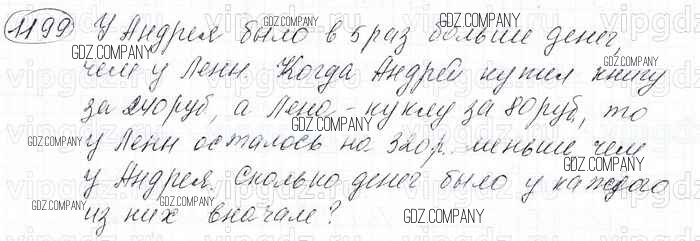 1199 У Андрея было в 5 раз больше денег,
GDZ.COMPANY GDZ.COMPANY
чем у Лены. Когда Андрей купил книгу
за 240 руб, а Лена - куклу за 80 руб, то
GDZ.COMPANY
у Лены осталось на 320 р. меньше чем
GDZ.COMPANY GDZ.COMPANY
у Андрея. Сколько денег было у каждого
GDZ.COMPANY
из них вначале? GDZ.COMPANY